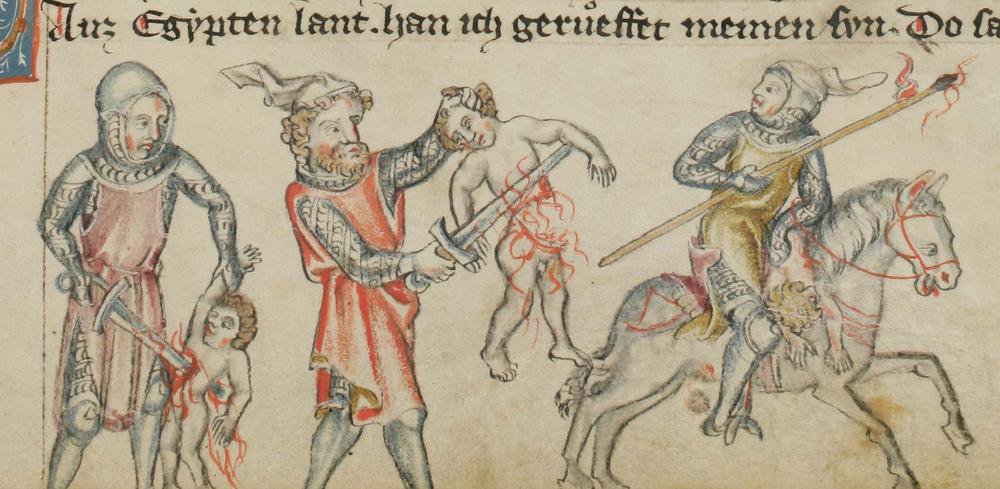 Auz Egypten lant. han ich gerůeffet meinen sun. Do sa